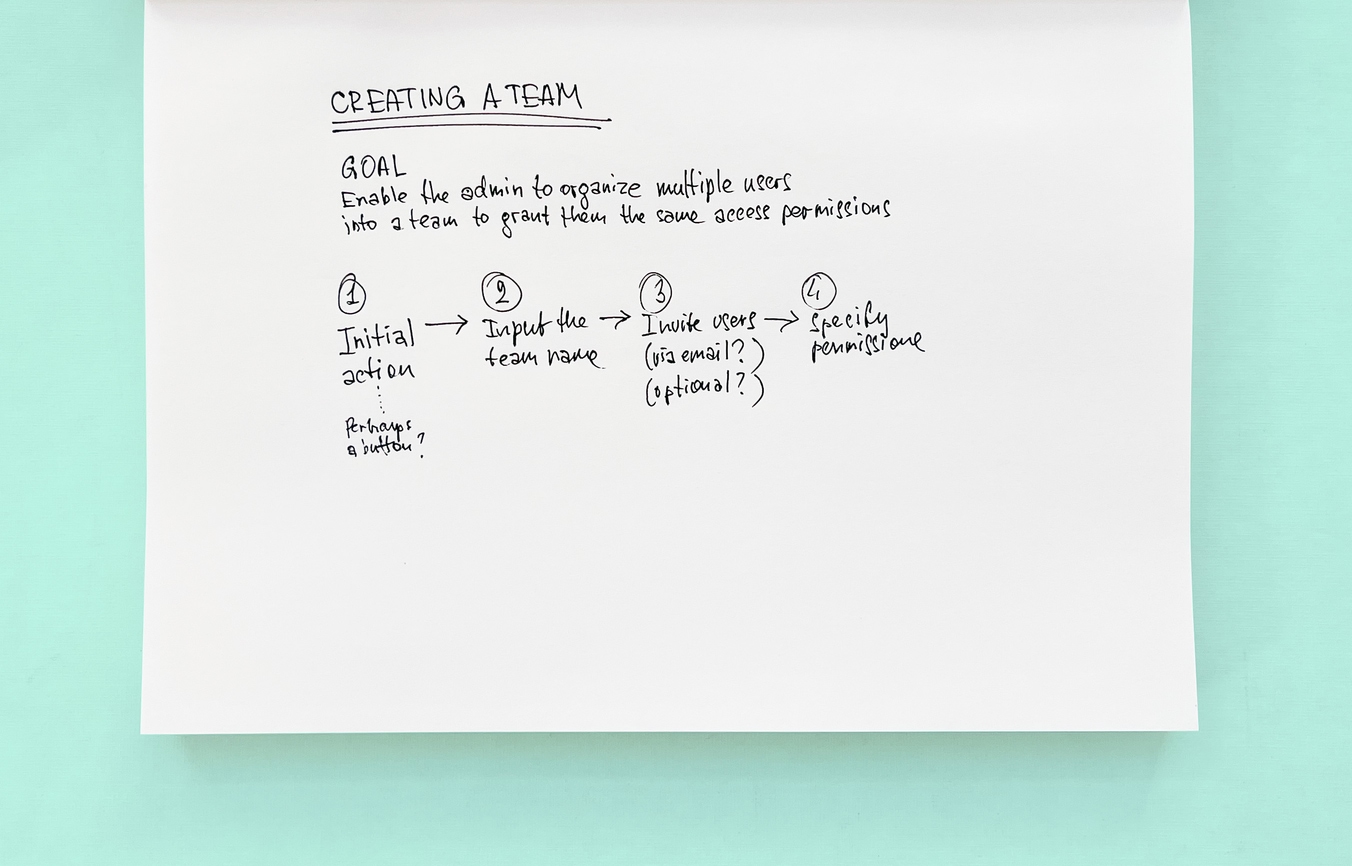 CREATING A TEAM
GOAL
Enable the admin to organize multiple users
into a team to grant them the same access permissions
1
Initial
action
Perhaps
a button?
2
Input the
team name
3
Invite users
(via email?)
(optional?)
4
specify
permissions